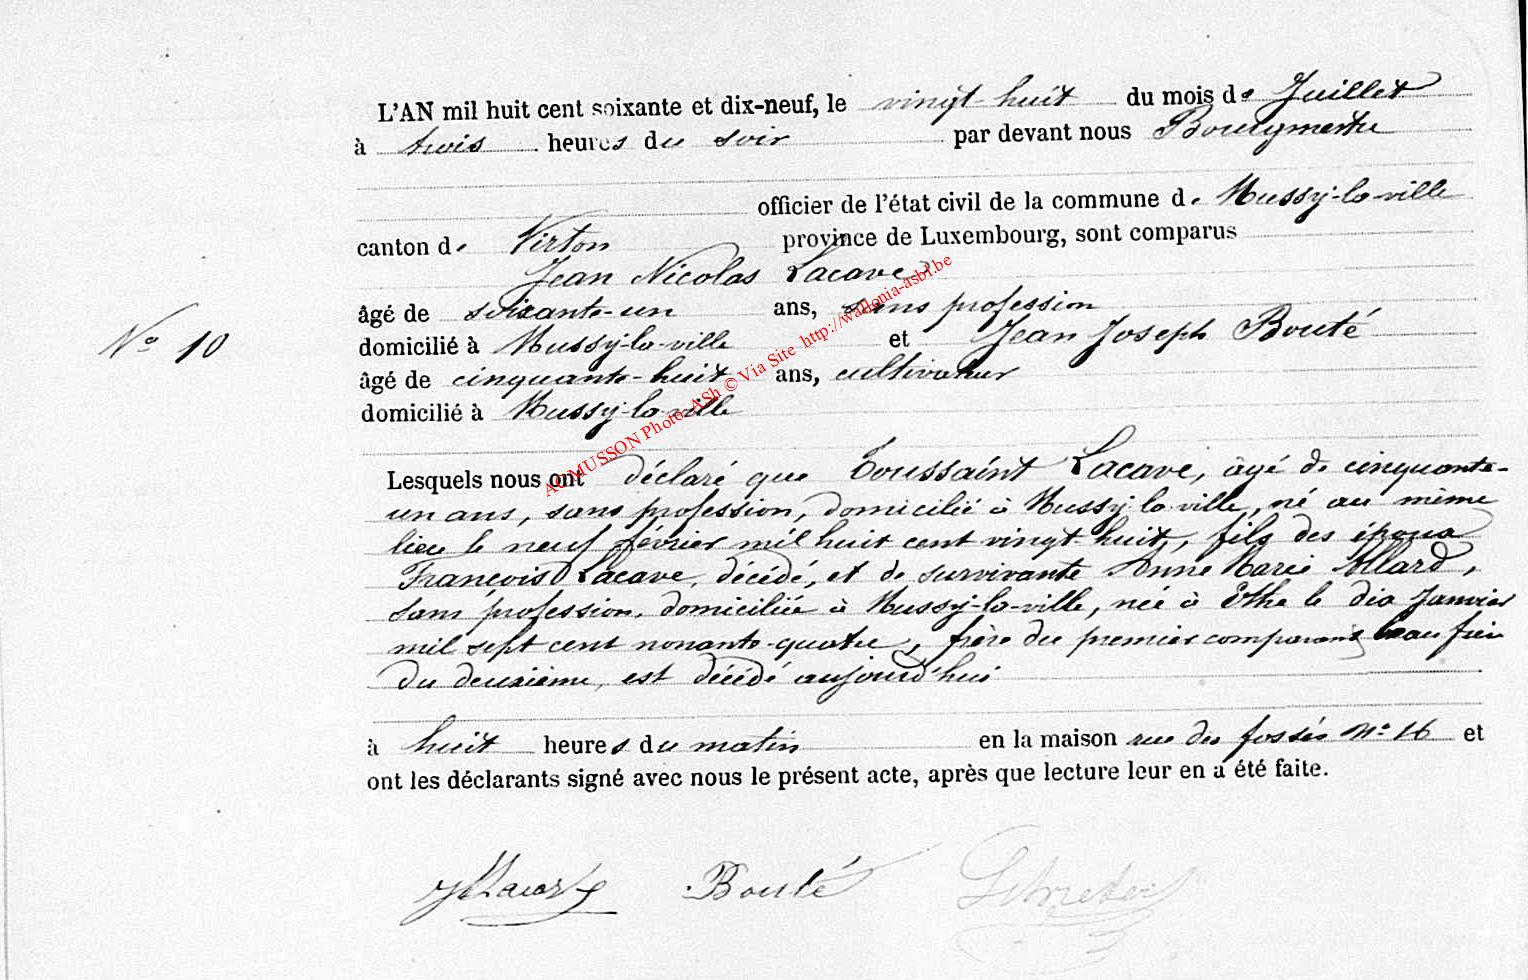 L'AN mil huit cent soixante et dix-neuf, le vingt-huit du mois de Juillet
à trois heures du soir par devant nous Bourgmestre
officier de l'état civil de la commune de Mussy-la-ville
canton de Virton province de Luxembourg, sont comparus
Jean Nicolas Lacave
âgé de soixante-un ans, sans profession
N° 10
domicilié à Mussy-la-ville et Jean Joseph Bouté
âgé de cinquante-huit ans, cultivateur
domicilié à Mussy-la-ville
Lesquels nous ont déclaré que Toussaint Lacave, âgé de cinquante-
un ans, sans profession, domicilié à Mussy la ville, né au même
lieu le neuf février mil huit cent vingt huit, fils des époux
François Lacave, décédé, et de survivante Anne Marie Allard,
sans profession, domiciliée à Mussy-la-ville, née à Ethe le dix Janvier
mil sept cent nonante-quatre, frère du premier comparant, beau frère
du deuxième, est décédé aujourd'hui
à huit heures du matin en la maison rue des fossés N° 16 et
ont les déclarants signé avec nous le présent acte, après que lecture leur en a été faite.
Bouté
ACMUSSON Photo-ASh © Via Site http://wallonia-asbl.be